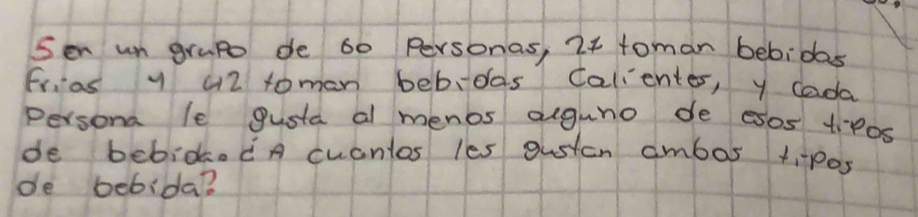 5 en un grupo de 60 Personas, 27 toman bebidas
Frias y 42 toman bebidas Calientes, y cada
Persona le gusta al menos alguno de esos tipos
de bebida. ¿A cuantos les gustan ambos tipos
de bebida?